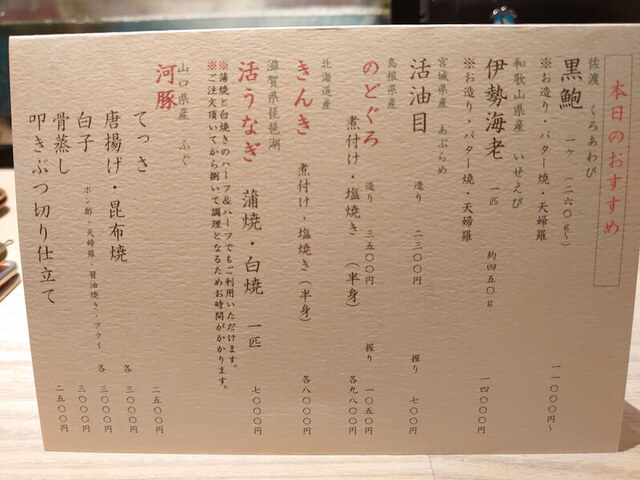 本日のおすすめ
佐渡 くろあわび
黒鮑 一ヶ (二六〇g〜) 一一〇〇〇円〜
※お造り・バター焼・天婦羅
和歌山県産 いせえび
伊勢海老 一匹 約四五〇g 一四〇〇〇円
※お造り・バター焼・天婦羅
宮城県産 あぶらめ
活油目 造り 二三〇〇円 握り 七〇〇円
島根県産
のどぐろ 造り 三五〇〇円 握り 一〇五〇円
煮付け・塩焼き (半身) 各九八〇〇円
北海道産
きんき 煮付け・塩焼き (半身) 各八〇〇〇円
滋賀県琵琶湖
活うなぎ 蒲焼・白焼 一匹 七〇〇〇円
※蒲焼と白焼きのハーフ&ハーフでもご利用いただけます。
※ご注文頂いてから捌いて調理となるためお時間がかかります。
山口県産 ふぐ
河豚
てっさ 二五〇〇円
唐揚げ・昆布焼 各 三〇〇〇円
白子 ポン酢・天婦羅・醤油焼き・フライ 各 三〇〇〇円
骨蒸し 三〇〇〇円
叩きぶつ切り仕立て 二五〇〇円